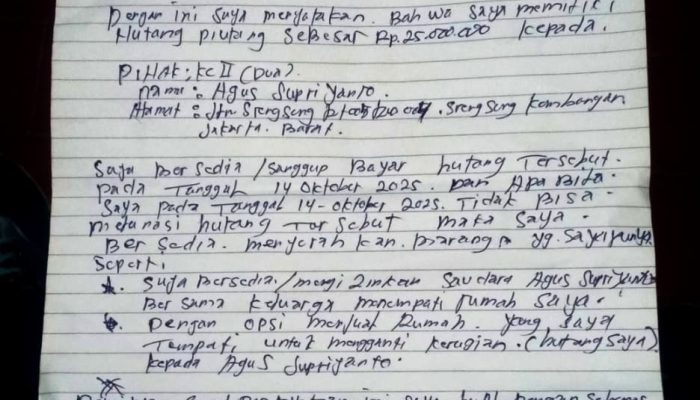 Dengan ini saya menyatakan. Bahwa saya memiliki
Hutang piutang sebesar Rp.25.000.000 kepada.
PIHAK: KE II (Dua).
nama : Agus Supriyanto.
Alamat : Jln Srengseng Srengseng Kembangan
Jakarta. Barat.
Saya Bersedia / sanggup Bayar hutang Tersebut.
pada Tanggal 14 Oktober 2025. Dan Apa Bila.
Saya pada Tanggal 14 - Oktober 2025. Tidak Bisa.
melunasi hutang Tersebut maka saya.
Bersedia. menyerahkan. barang yg. saya punya
Seperti
Saya Bersedia / mengizinkan Saudara Agus Supriyanto
Bersama keluarga menempati rumah saya.
Dengan OPSI menjual Rumah. yang saya
Tempati untuk mengganti kerugian. (hutang saya)
kepada Agus Supriyanto.